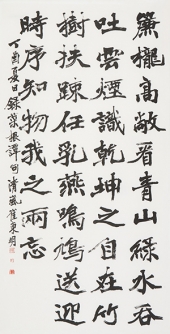 簾櫳高敞看青山綠水吞
吐雲煙識乾坤之自在竹
樹扶疎任乳燕鳴鳩送迎
時序知物我之兩忘
丁酉夏日錄菜根譚句清嵐崔東明